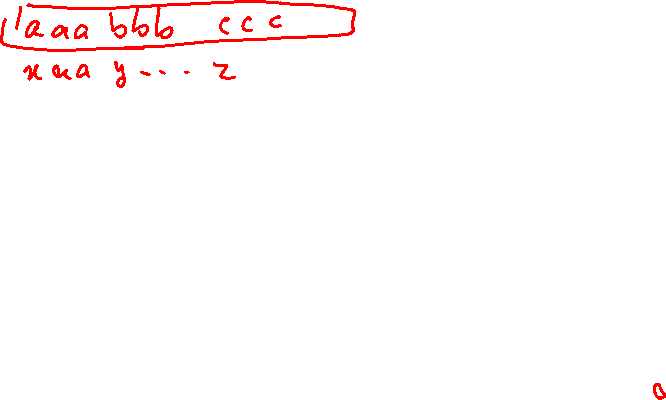 aaa bbb ccc
xxa y .... z